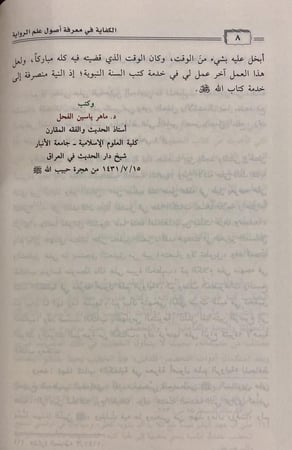 ٨
الكفاية في معرفة أصول علم الرواية
أبخل عليه بشيء من الوقت، وكان الوقت الذي قضيته فيه كله مباركاً، ولعل
هذا العمل آخر عمل لي في خدمة كتب السنة النبوية؛ إذ النية متصرفة إلى
خدمة كتاب الله ﷻ.
وكتب
د. ماهر ياسين الفحل
أستاذ الحديث والفقه المقارن
كلية العلوم الإسلامية ـ جامعة الأنبار
شيخ دار الحديث في العراق
١٤٣١/٧/١٥ من هجرة حبيب الله ﷺ